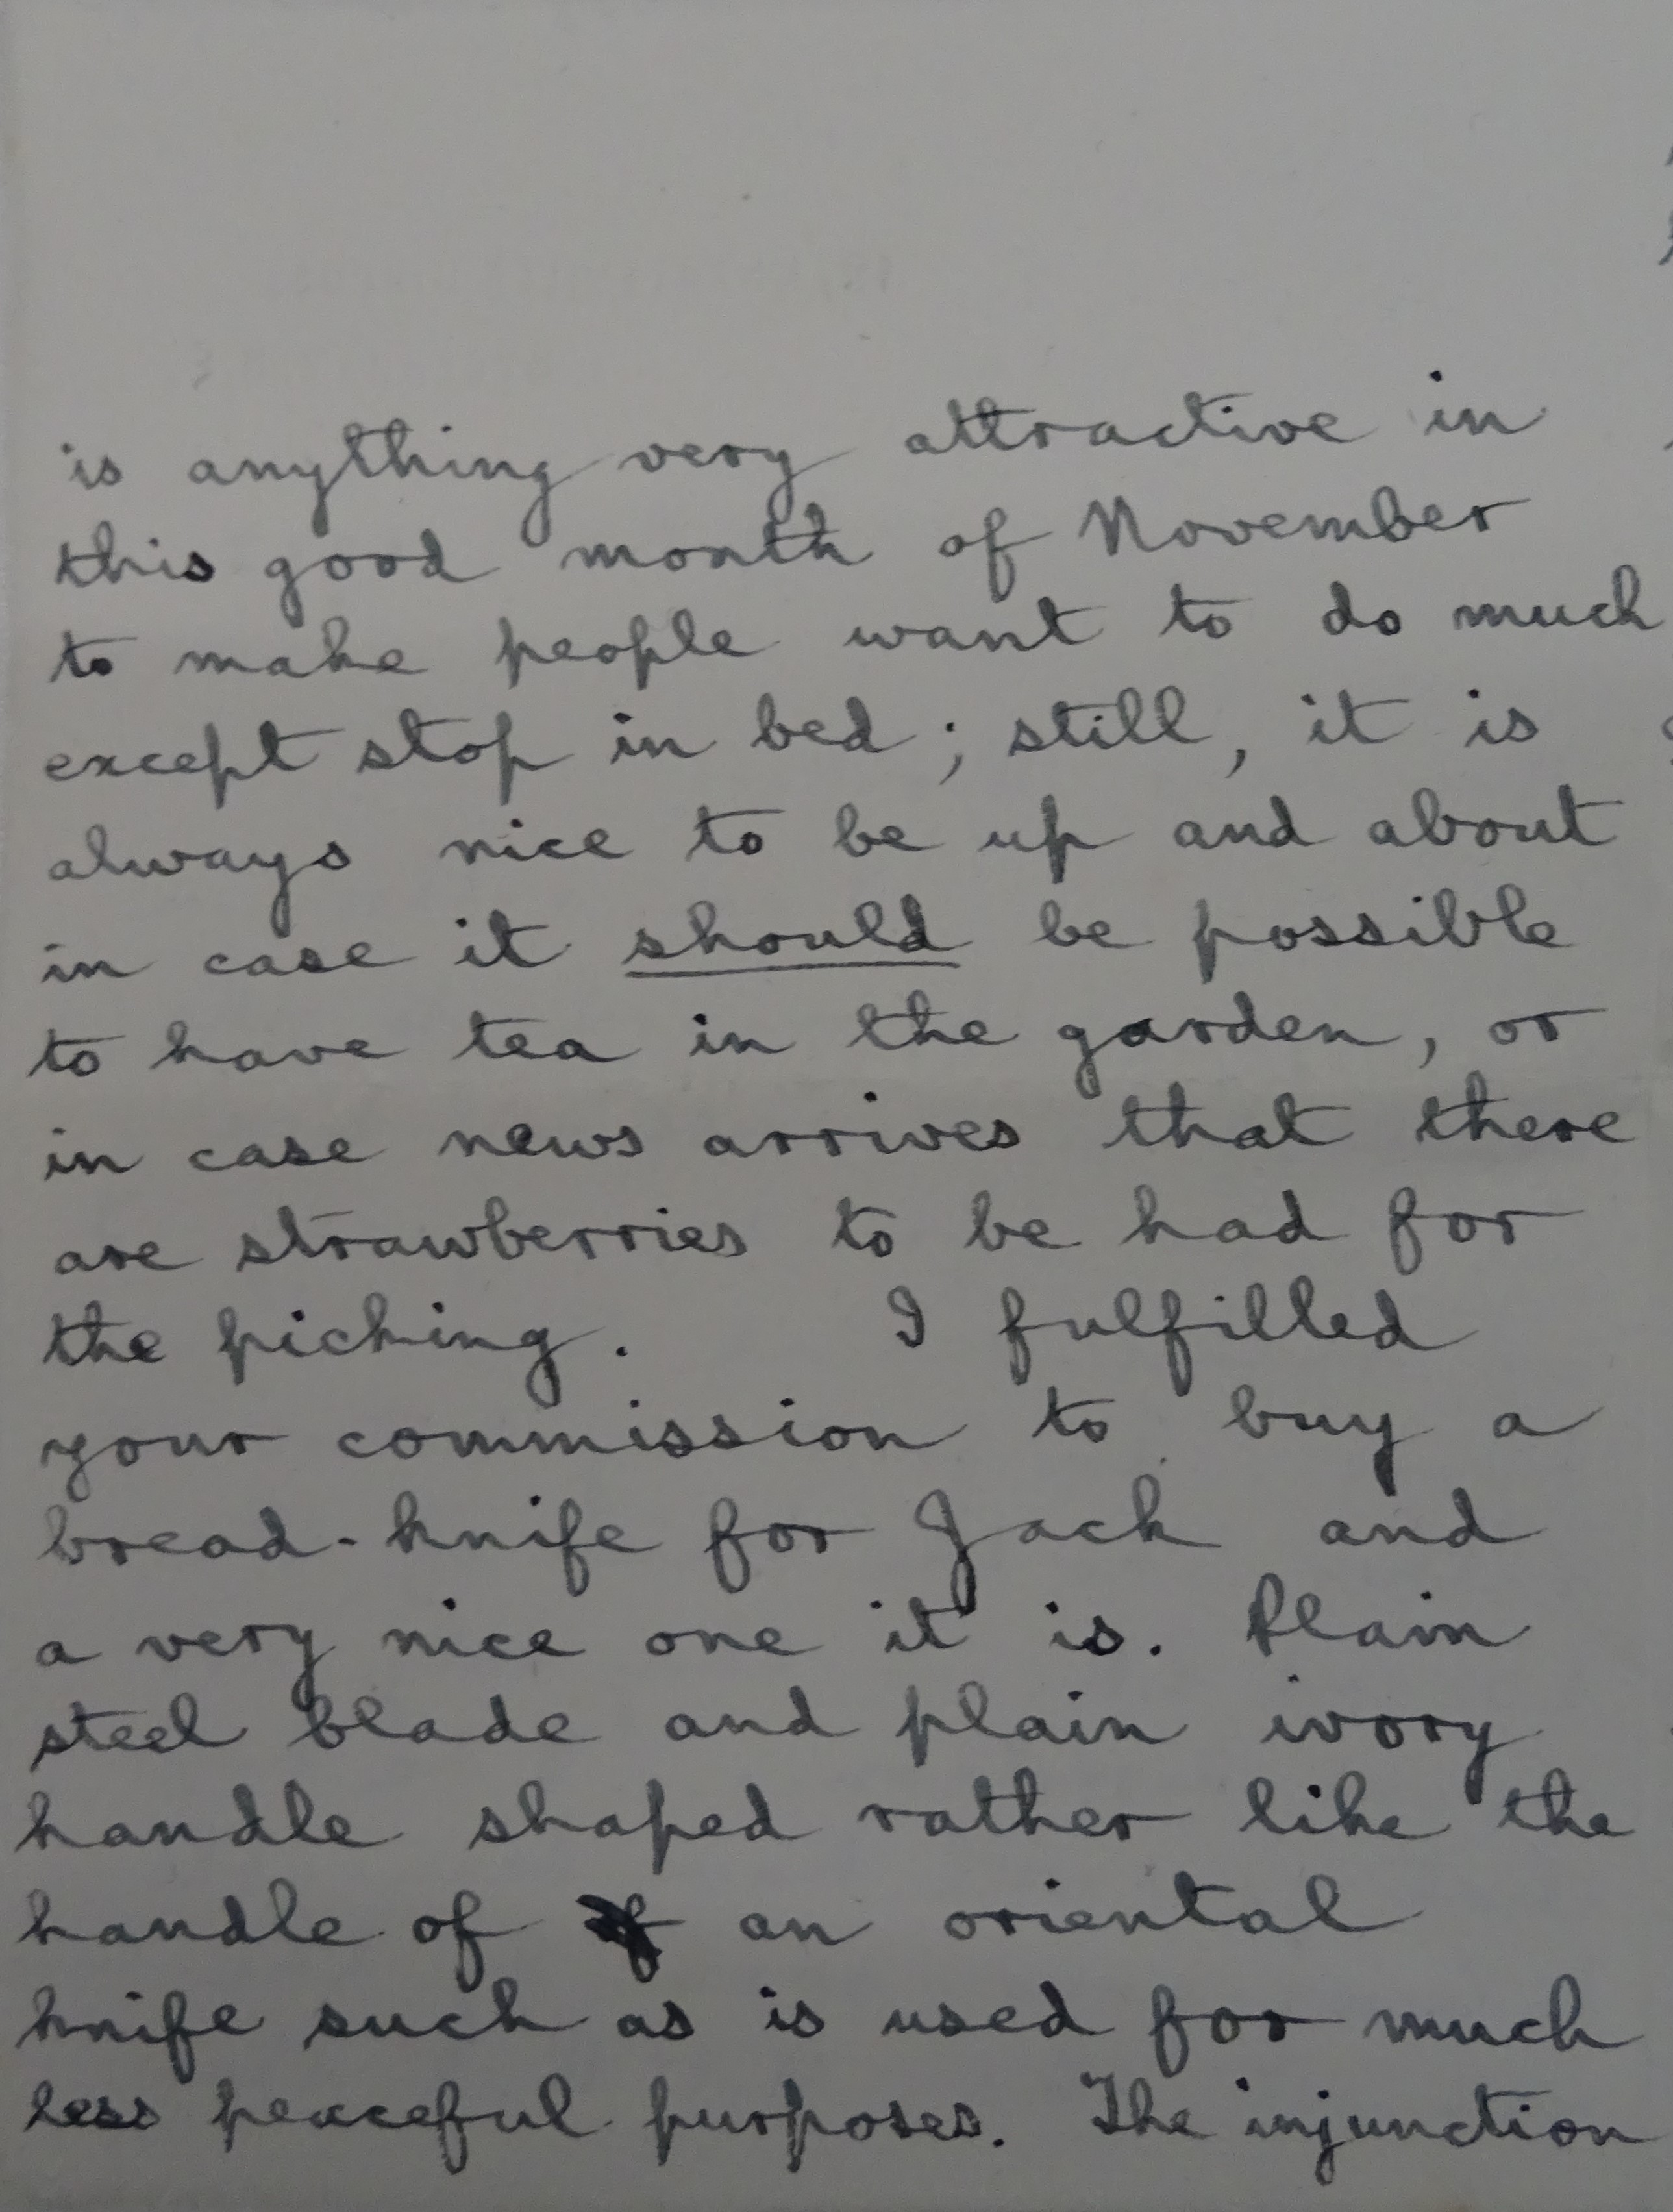 is anything very attractive in
this good month of November
to make people want to do much
except stop in bed ; still, it is
always nice to be up and about
in case it should be possible
to have tea in the garden, or
in case news arrives that there
are strawberries to be had for
the picking. I fulfilled
your commission to buy a
bread-knife for Jack and
a very nice one it is. Plain
steel blade and plain ivory
handle shaped rather like the
handle of an oriental
knife such as is used for much
less peaceful purposes. The injunction